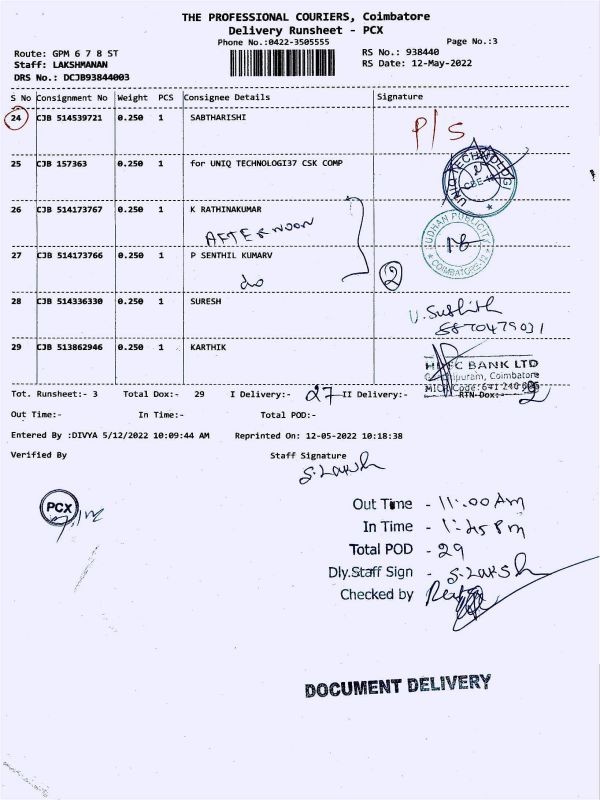 THE PROFESSIONAL COURIERS, Coimbatore
Delivery Runsheet - PCX
Phone No.:0422-3505555
Page No.:3
Route: GPM 6 7 8 ST
RS No.: 938440
Staff: LAKSHMANAN
RS Date: 12-May-2022
DRS No.: DCJB93844003
S No Consignment No Weight PCS Consignee Details Signature
24 CJB 514539721 0.250 1 SABTHARISHI P/S
25 CJB 157363 0.250 1 for UNIQ TECHNOLOGI37 CSK COMP
UNIQ TECHNOLOGI
CBE-12
26 CJB 514173767 0.250 1 K RATHINAKUMAR
AFTERNOON
SUDHAN PUBLICITY
COIMBATORE-12
27 CJB 514173766 0.250 1 P SENTHIL KUMARV
do
2
28 CJB 514336330 0.250 1 SURESH
29 CJB 513862946 0.250 1 KARTHIK
HDFC BANK LTD
Coimbatore
MICR Code: 641 240
Tot. Runsheet:- 3 Total Dox:- 29 I Delivery:- 27 II Delivery:- RTN-Dox:- 2
Out Time:- In Time:- Total POD:-
Entered By :DIVYA 5/12/2022 10:09:44 AM Reprinted On: 12-05-2022 10:18:38
Verified By Staff Signature
S. Laksh
PCX
Out Time - 11:00 Am
In Time - 1:45 Pm
Total POD - 29
Dly.Staff Sign - S. Laksh
Checked by
DOCUMENT DELIVERY